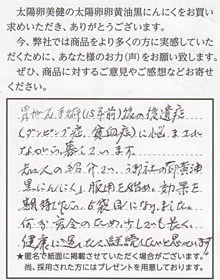 太陽卵美健の太陽卵卵黄油黒にんにくをお買い
求めいただき、ありがとうございます。
今、弊社では商品をより多くの方に実感していた
だくために、あなた様のお力(声)をお願い致します。
ぜひ、商品に対するご意見やご感想などお寄せ
ください。
胃がん手術(15年前)後の後遺症
(ダンピング症、貧血病)に悩まされ
ながら暮しています。
知人の紹介で、御社の「卵黄油
黒にんにく」服用を始め、効果を
期待しながら6袋目になりました。
何が安全のためか、少しでも長く
健康に過したく継続したいと思っています
★匿名で紙面に掲載させていただく場合がございます。
尚、採用された方にはプレゼントを用意しております。